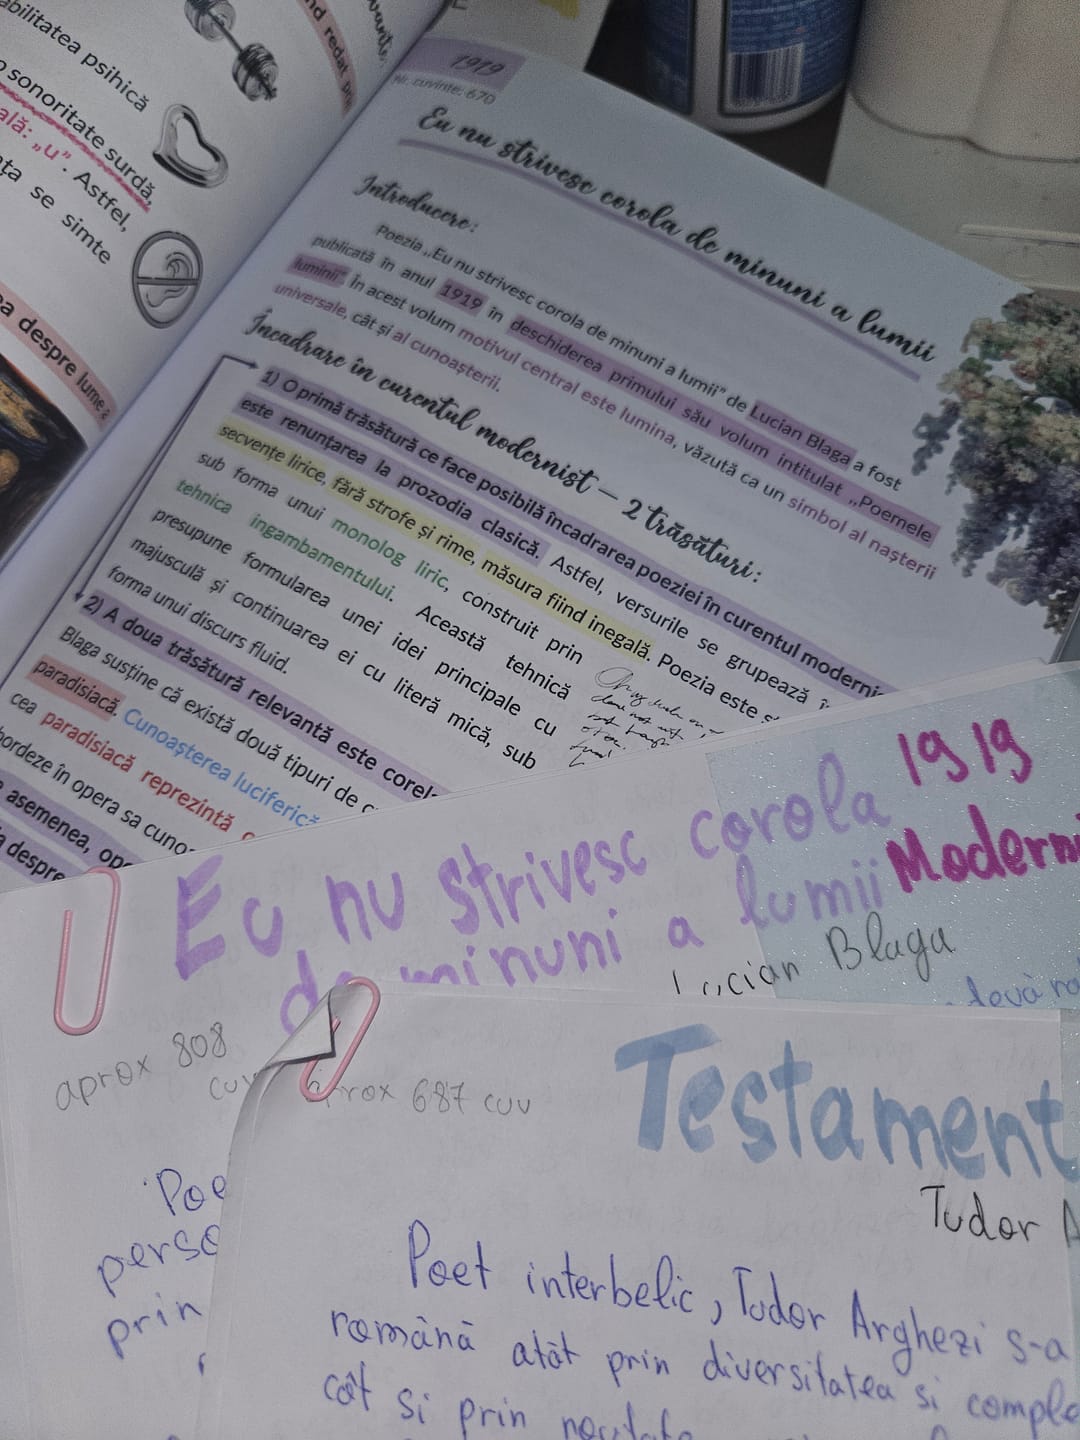 abilitatea psihică
sonoritate surdă,
ală: „u”. Astfel,
ța se simte
a despre lume
nd redat
1919
Nr. cuvinte: 670
Eu nu strivesc corola de minuni a lumii
Introducere:
Poezia „Eu nu strivesc corola de minuni a lumii” de Lucian Blaga a fost
publicată în anul 1919 în deschiderea primului său volum intitulat „Poemele
luminii”. În acest volum motivul central este lumina, văzută ca un simbol al nașterii
universale, cât și al cunoașterii.
Încadrare în curentul modernist – 2 trăsături:
1) O primă trăsătură ce face posibilă încadrarea poeziei în curentul modernis
este renunțarea la prozodia clasică. Astfel, versurile se grupează î
secvențe lirice, fără strofe și rime, măsura fiind inegală. Poezia este s
sub forma unui monolog liric, construit prin
tehnica ingambamentului. Această tehnică
presupune formularea unei idei principale cu
majusculă și continuarea ei cu literă mică, sub
forma unui discurs fluid.
2) A doua trăsătură relevantă este corel
Blaga susține că există două tipuri de c
paradisiacă. Cunoașterea luciferică
cea paradisiacă reprezintă
bordeze în opera sa cuno
asemenea, op
a despre
Eu nu strivesc corola 1919
de minuni a lumii Moderni
Lucian Blaga
aprox 808
cuv
Poe
perso
prin
aprox 687 cuv
Testament
Tudor A
Poet interbelic, Tudor Arghezi s-a
română atât prin diversitatea si comple
cât si prin noutate